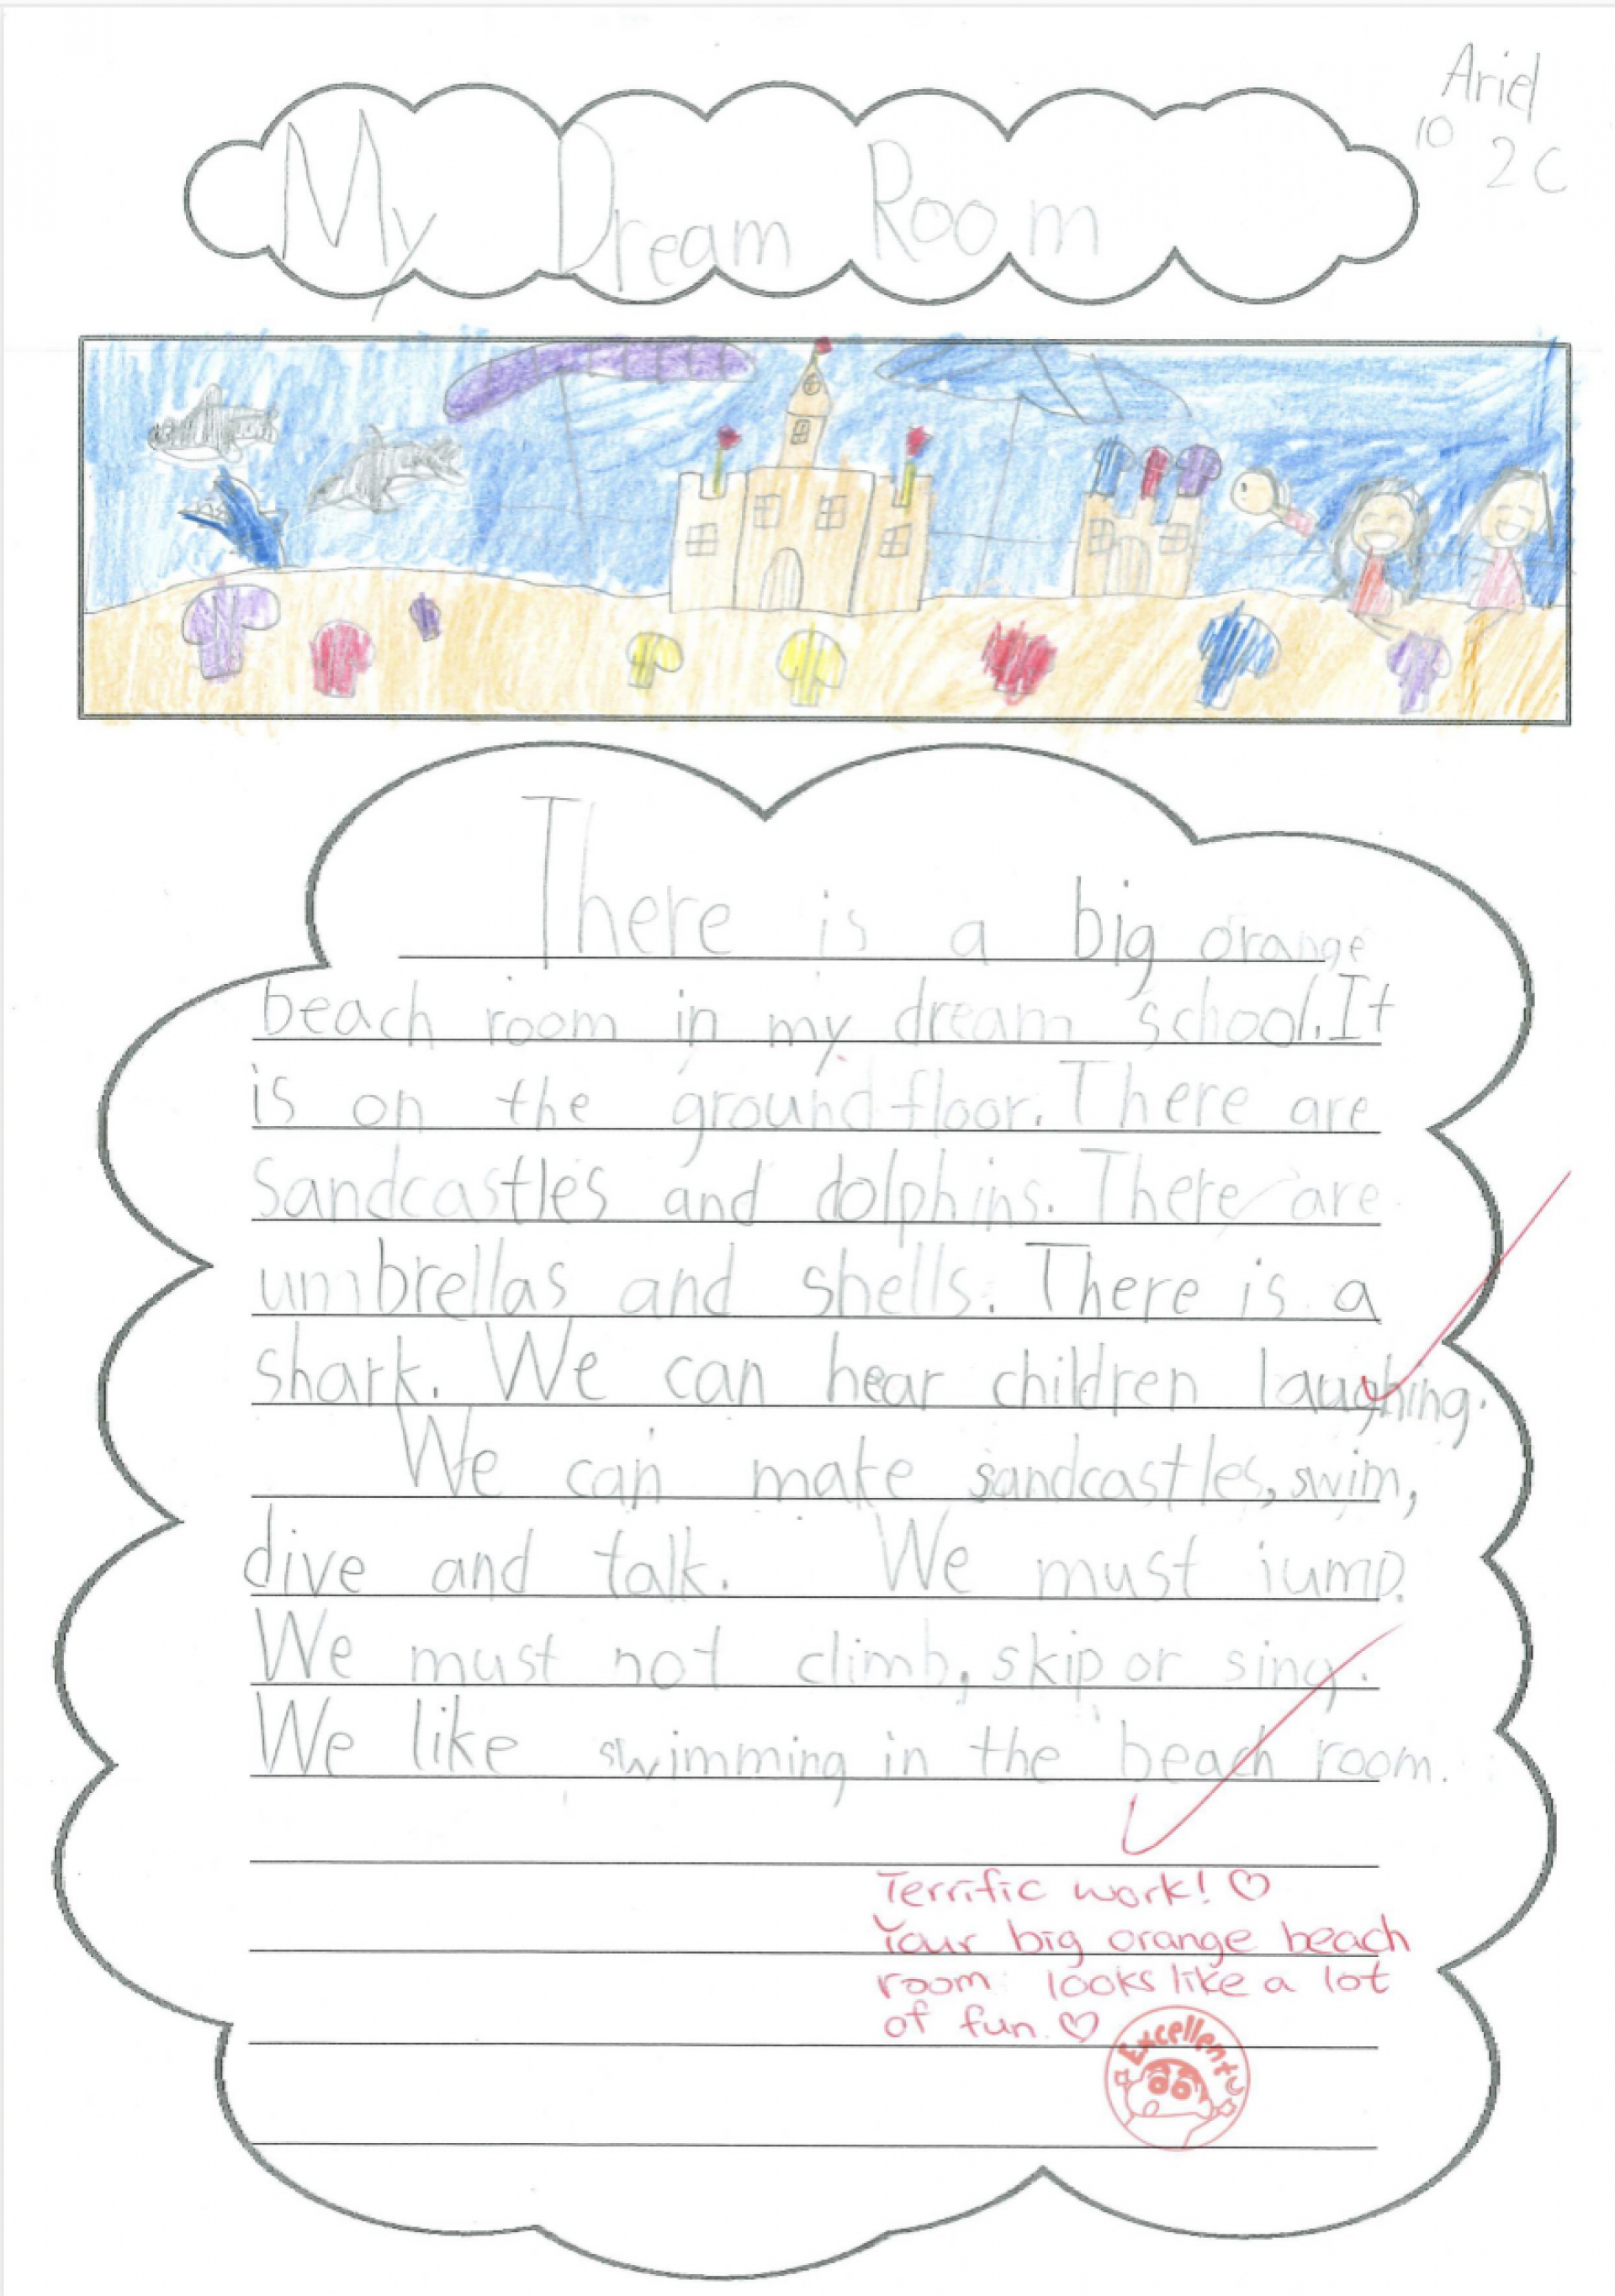 Ariel
10 2C
My Dream Room
There is a big orange
beach room in my dream school. It
is on the ground floor. There are
sandcastles and dolphins. There are
umbrellas and shells. There is a
shark. We can hear children laughing.
We can make sandcastles, swim,
dive and talk. We must jump.
We must not climb, skip or sing.
We like swimming in the beach room.
Terrific work! ♡
Your big orange beach
room looks like a lot
of fun. ♡
Excellent